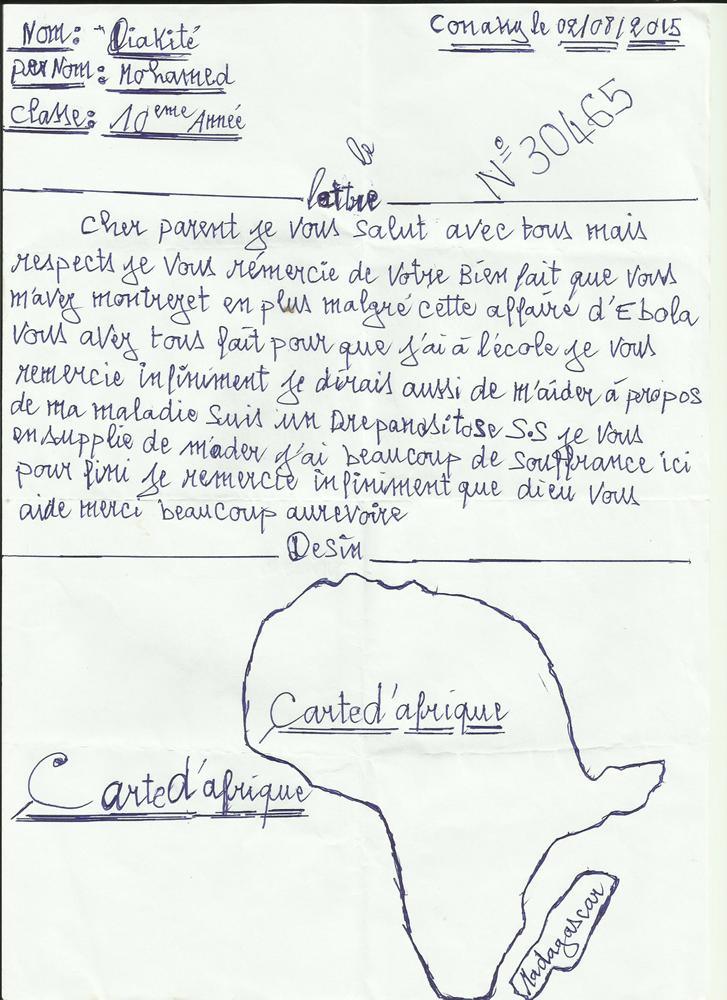 Nom: Diakité
Conakry le 02/08/2015
perNom: Mohamed
Classe: 10eme Année
N° 30465
la
lettre
Cher parent je vous salut avec tous mais
respects je vous rémercie de votre Bien fait que vous
m'avez montrezet en plus malgré cette affaire d'Ebola
vous avez tous fait pour que j'ai à l'école je vous
remercie infiniment je dirais aussi de m'aider à propos
de ma maladie suis un Drepanositose S.S je vous
en supplie de m'ader j'ai beaucoup de souffrance ici
pour fini je remercie infiniment que dieu vous
aide merci beaucoup aurevoire
Desin
Carte d'afrique
Carte d'afrique
Madagascar